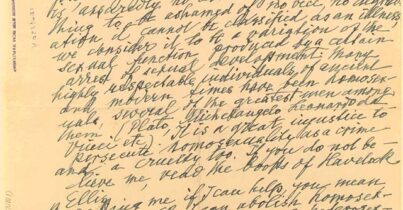 is assuredly no ad
thing to be ashamed of no vice, no degrad
ation, it cannot be classified as an illness
we consider it to be a variation of the
sexual function produced by a certain
arrest of sexual development. Many
highly respectable individuals of ancient
and modern times have been homosex
uals, several of the greatest men among
them. (Plato, Michelangelo, Leonardo da
Vinci etc). It is a great injustice to
persecute homosexuality as a crime
and a cruelty too. If you do not be-
lieve me, read the books of Havelock
Ellis.
ing me if I can help, you mean
I can abolish homosex-